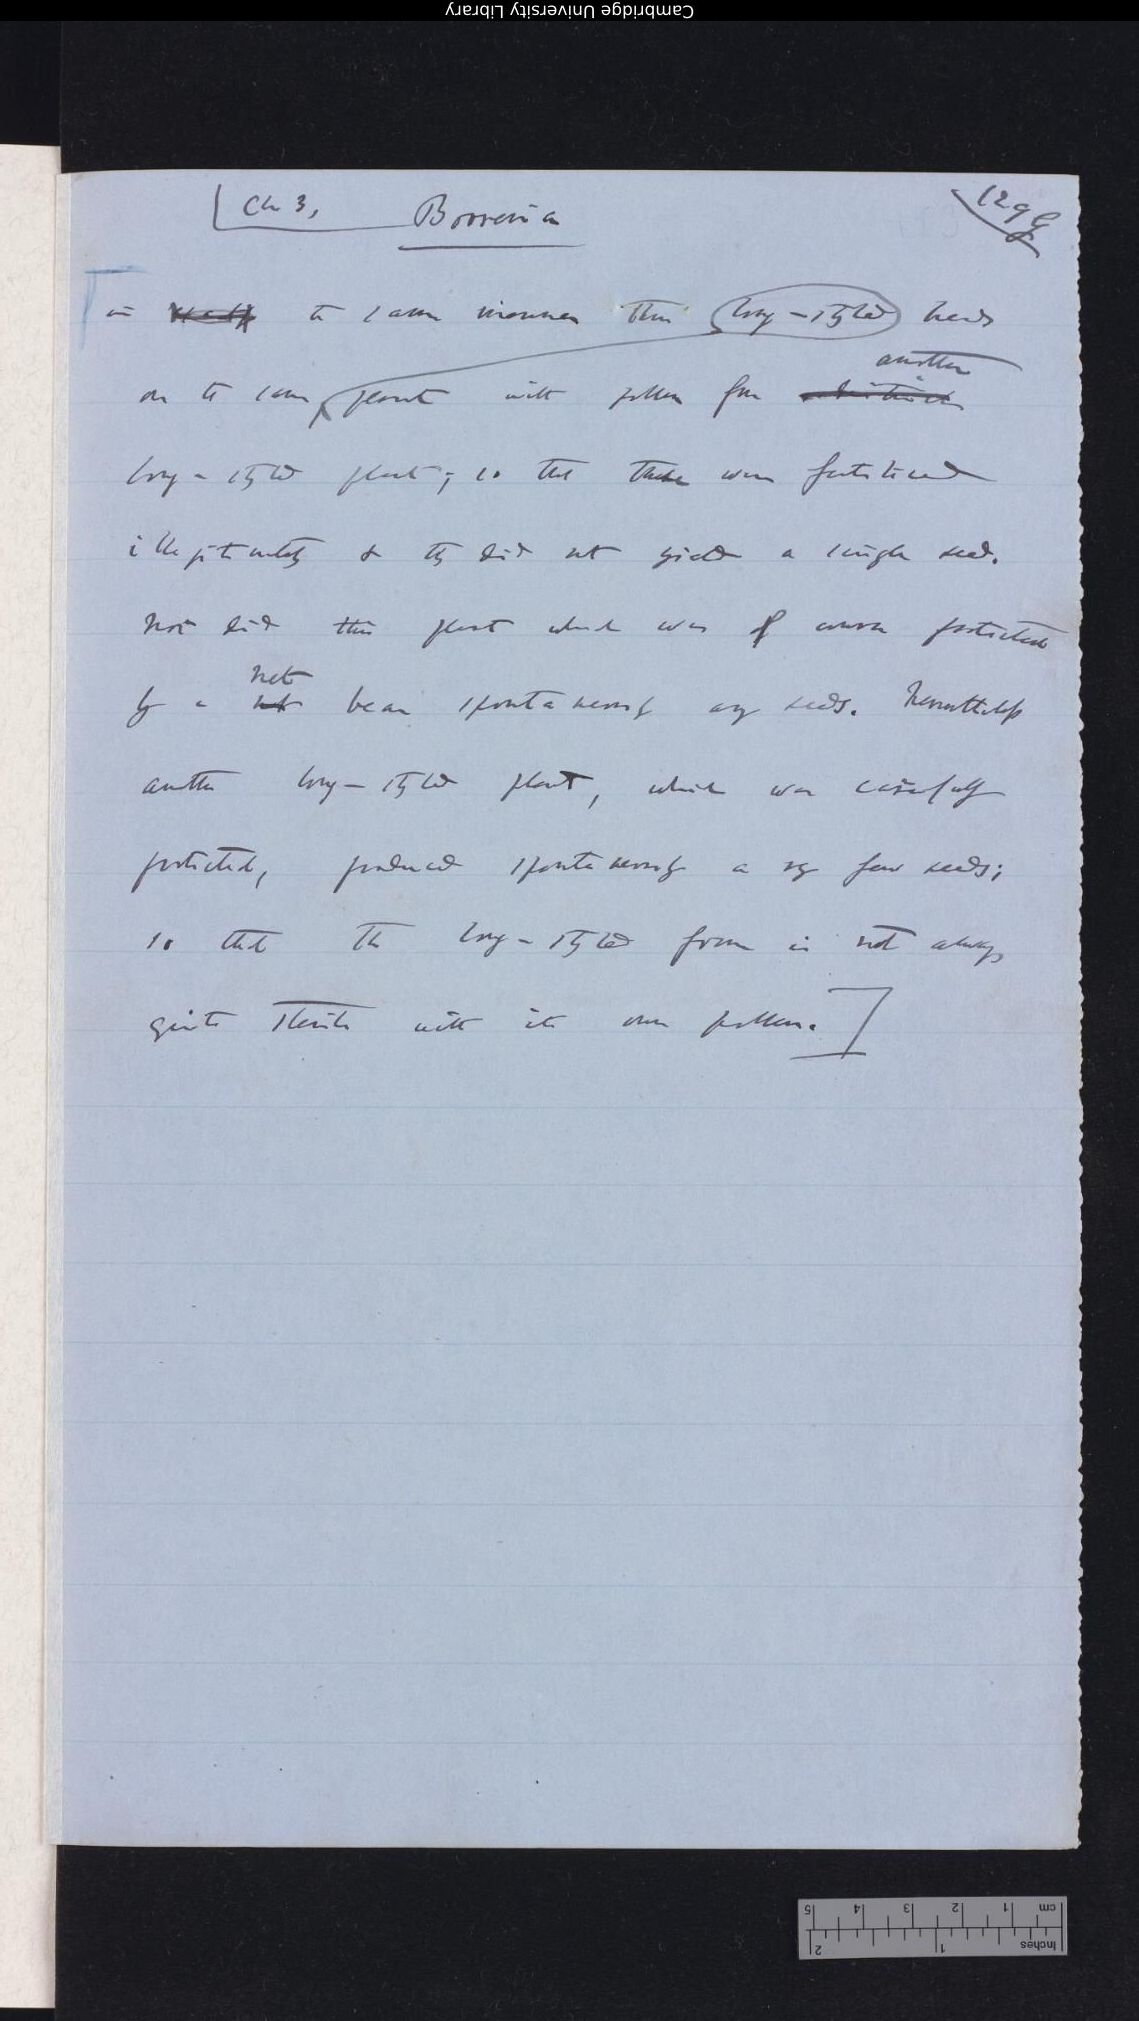 Cambridge University Library
Ch 3, Borreria 129 G
in the same manner three long-styled heads
another
on the same plant with pollen from
long-styled plant; so that these were fertilised
illegitimately & they did not yield a single seed.
Nor did this plant which was of course protected
net
by a net bear spontaneously any seeds. Nevertheless
another long-styled plant, which was carefully
protected, produced spontaneously a very few seeds;
so that the long-styled form is not always
quite sterile with its own pollen.]
5 4 3 2 1 cm
2 1 Inches